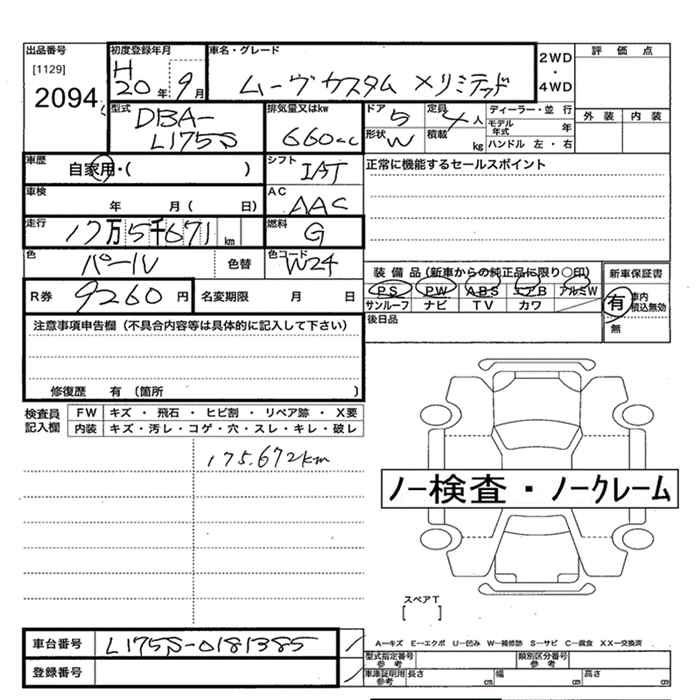 出品番号
[1129]
2094
初度登録年月
H
20年 9月
車名・グレード
ムーヴカスタム Xリミテッド
2WD
・
4WD
評価点
外装 内装
型式
DBA-
L175S
排気量又はkw
660cc
ドア 5
形状 W
定員 4人
積載 kg
ディーラー・並行
モデル年式 年
ハンドル 左・右
車歴
自家用・( )
シフト
IAT
正常に機能するセールスポイント
車検
年 月( 日)
AC
AAC
走行
17万5千671km
燃料
G
色
パール 色替
色コード
W24
装備品(新車からの純正品に限り○印)
PS PW ABS エアB アルミW
サンルーフ ナビ TV カワ
新車保証書
有 車内積込無効
無
R券 9260円
名変期限 月 日
後日品
注意事項申告欄(不具合内容等は具体的に記入して下さい)
修復歴 有(箇所 )
検査員記入欄
FW キズ・飛石・ヒビ割・リペア跡・X要
内装 キズ・汚レ・コゲ・穴・スレ・キレ・破レ
175.672km
ノー検査・ノークレーム
スペアT
[ ]
車台番号 L175S-0181385
登録番号
A―キズ E―エクボ U―凹み W―補修跡 S―サビ C―腐食 XX―交換済
型式指定番号参考 類別区分番号参考
車庫証明用参考 長さ cm 幅 cm 高さ cm